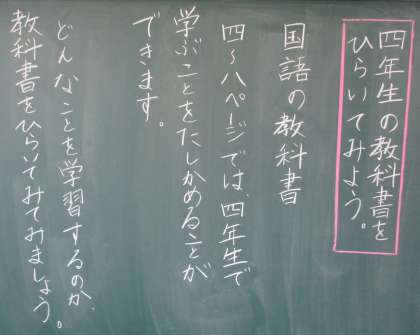 四年生の教科書を
ひらいてみよう。
国語の教科書
四〜八ページでは、四年生で
学ぶことをたしかめることが
できます。
どんなことを学習するのか、
教科書をひらいてみてみましょう。